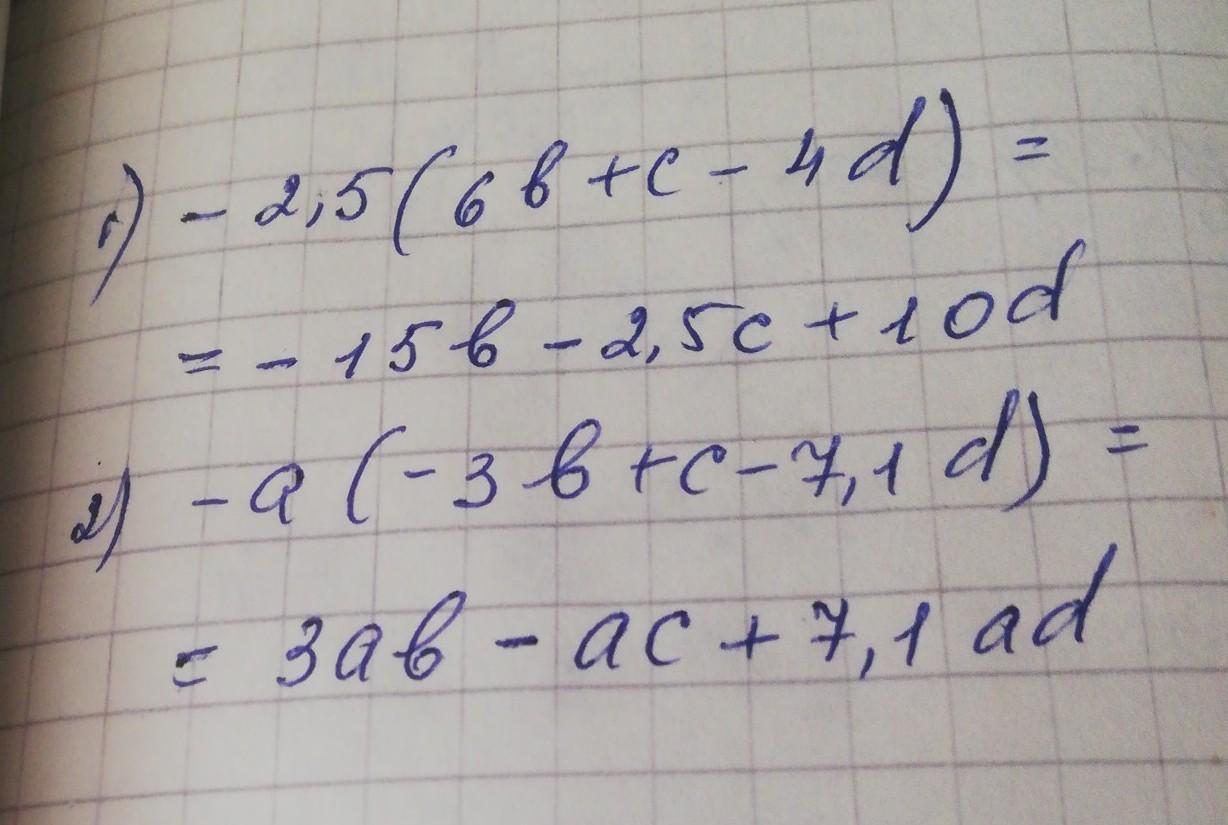 1) - 2,5(6b + c - 4d) =
= - 15b - 2,5c + 10d
2) - a (-3b + c - 7,1d) =
= 3ab - ac + 7,1ad